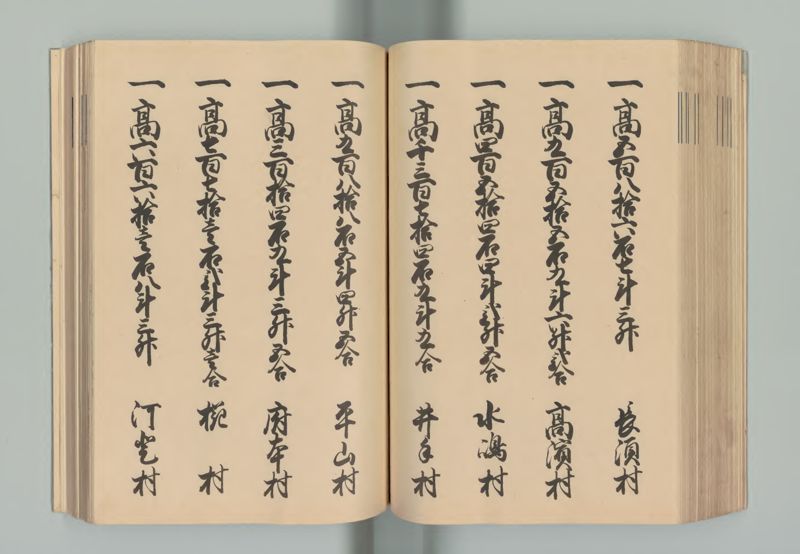 一 高五百八拾六石七斗三升 長須村
一 高九百五拾五石九斗六升弐合 高濱村
一 高四百五拾四石四斗弐升五合 水嶋村
一 高千三百七拾四石五斗九合 井手村
一 高九百八拾八石五斗四升五合 平山村
一 高三百拾四石九斗三升五合 府本村
一 高七百七拾壱石弐斗三升壱合 村
一 高六百六拾壱石八斗三升 村